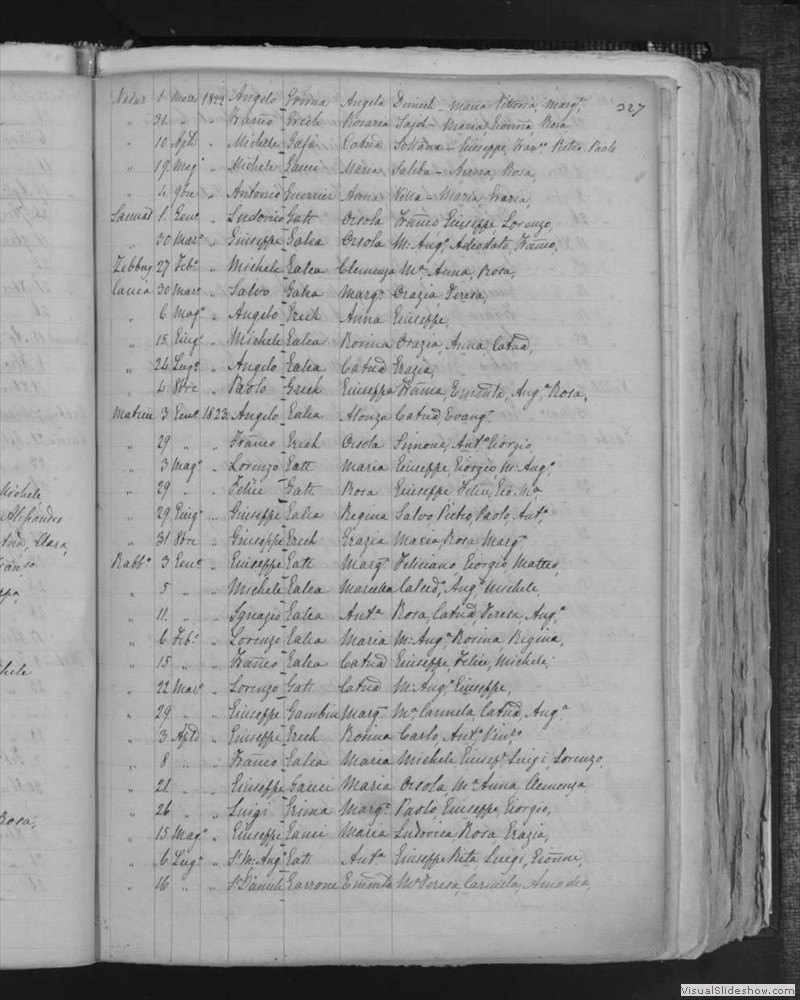 327
Nadur 1 Marzo 1822 Angelo Grima Angela Dimech - Maria Vittoria, Margta
" 31 " " Franco Grech Rosaria Sajd - Maria, Gionna Rosa
" 10 Aple " Michele Gafà Catna Soltana - Giuseppe, Franco Pietro Paolo
" 19 Mago " Michele Gauci Maria Saliba - Anna, Rosa,
" 4 9bre " Antonio Guerrier Anna Vella - Maria, Grazia,
Sannat 1 Geno " Ludovico Gatt Orsola Franco Giuseppe, Lorenzo,
" 30 Maro " Giuseppe Galea Orsola M. Anga Adeodato, Franco,
Zebbug 27 Febo " Michele Galea Clemenza Ma Anna, Rosa,
Caccia 30 Maro " Salvo Galea Margta Grazia, Teresa,
" 6 Mago " Angelo Grech Anna Giuseppe,
" 15 Giugo " Michele Galea Rosina Grazia, Anna, Catna,
" 24 Lugo " Angelo Galea Catna Grazia,
" 4 8bre " Paolo Grech Giuseppa Franca, Emnla, Anga Rosa,
Matrice 3 Geno 1823 Angelo Galea Alonza Catna Evangta
" 29 " " Franco Grech Orsola Simone, Anto Giorgio,
" 3 Mago " Lorenzo Gatt Maria Giuseppe, Giorgio M. Anga
" 29 " " Felice Gatt Rosa Giuseppe Felice, Gio Ma
" 29 Giugo " Giuseppe Galea Regina Salvo Pietro, Paolo, Anto
" 31 8bre " Giuseppe Grech Grazia Maria, Rosa Margta
Rabbo 3 Geno " Giuseppe Gatt Margta Feliciano Giorgio Matteo,
" 5 " " Michele Galea Marietta Catna, Anga Michele,
" 11 " " Ignazio Galea Anta Rosa, Catna, Teresa Anga
" 6 Febo " Lorenzo Galea Maria M. Anga Rosina Regina,
" 15 " " Franco Galea Catna Giuseppe, Felice, Michele,
" 22 Maro " Lorenzo Gatt Catna M. Anga Giuseppe,
" 29 " " Giuseppe Gambin Margta Ma Carmela, Catna, Anga
" 3 Aple " Giuseppe Grech Rosina Carlo, Anto Vinzo
" 8 " " Franco Galea Maria Michele Giuseppe Luigi, Lorenzo,
" 21 " " Giuseppe Gauci Maria Orsola Ma Anna Clemenza
" 26 " " Luigi Grima Margta Paolo, Giuseppe, Giorgio,
" 15 Mago " Giuseppe Gauci Maria Ludovica Rosa Grazia,
" 6 Lugo " Sr M. Ango Gatt Anta Giuseppe Rita Luigi, Gionne,
" 16 " " Sr Daniele Garrone Emnla Ma Teresa, Carmela, Amodea,
Michele
Alessandro
Clara,
Rosa,
VisualSlideshow.com